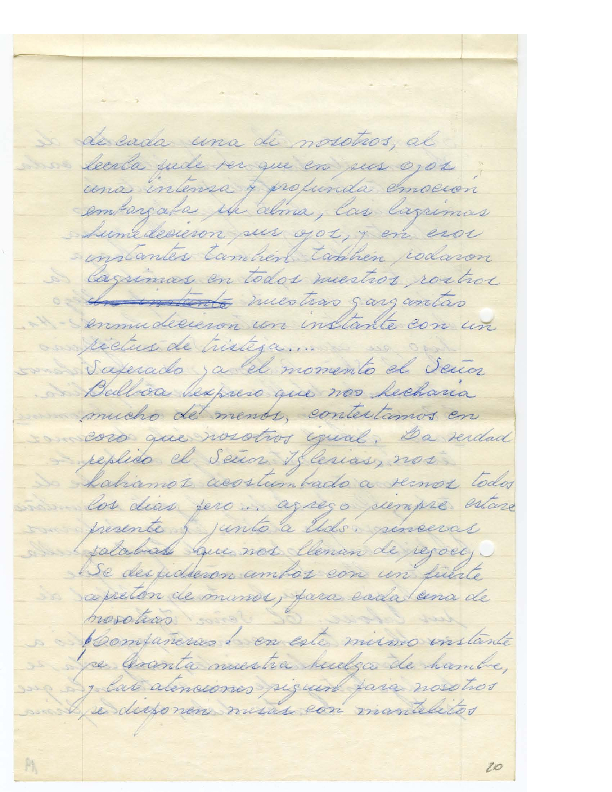 de cada una de nosotros, al
leerla pude ver que en sus ojos
una intensa y profunda emoción
embargaba su alma, las lágrimas
humedecieron sus ojos, y en esos
instantes también tambien rodaron
lágrimas en todos nuestros rostros
nuestras gargantas
enmudecieron un instante con un
rictus de tristeza....
Superado ya el momento el Señor
Balboa expreso que nos hecharía
mucho de menos, contestamos en
coro que nosotros igual. La verdad
replico el Señor Iglesias, nos
habíamos acostumbrado a vernos todos
los días pero... agrego siempre estare
presente y junto a Uds. sinceras
palabras que nos llenan de regocij
Se despidieron ambos con un fuerte
apreton de manos, para cada una de
nosotras.
¡Compañeras! en este mismo instante
se levanta nuestra huelga de hambre,
y las atenciones siguen para nosotros
se disponen mesas con mantelitos
20
19